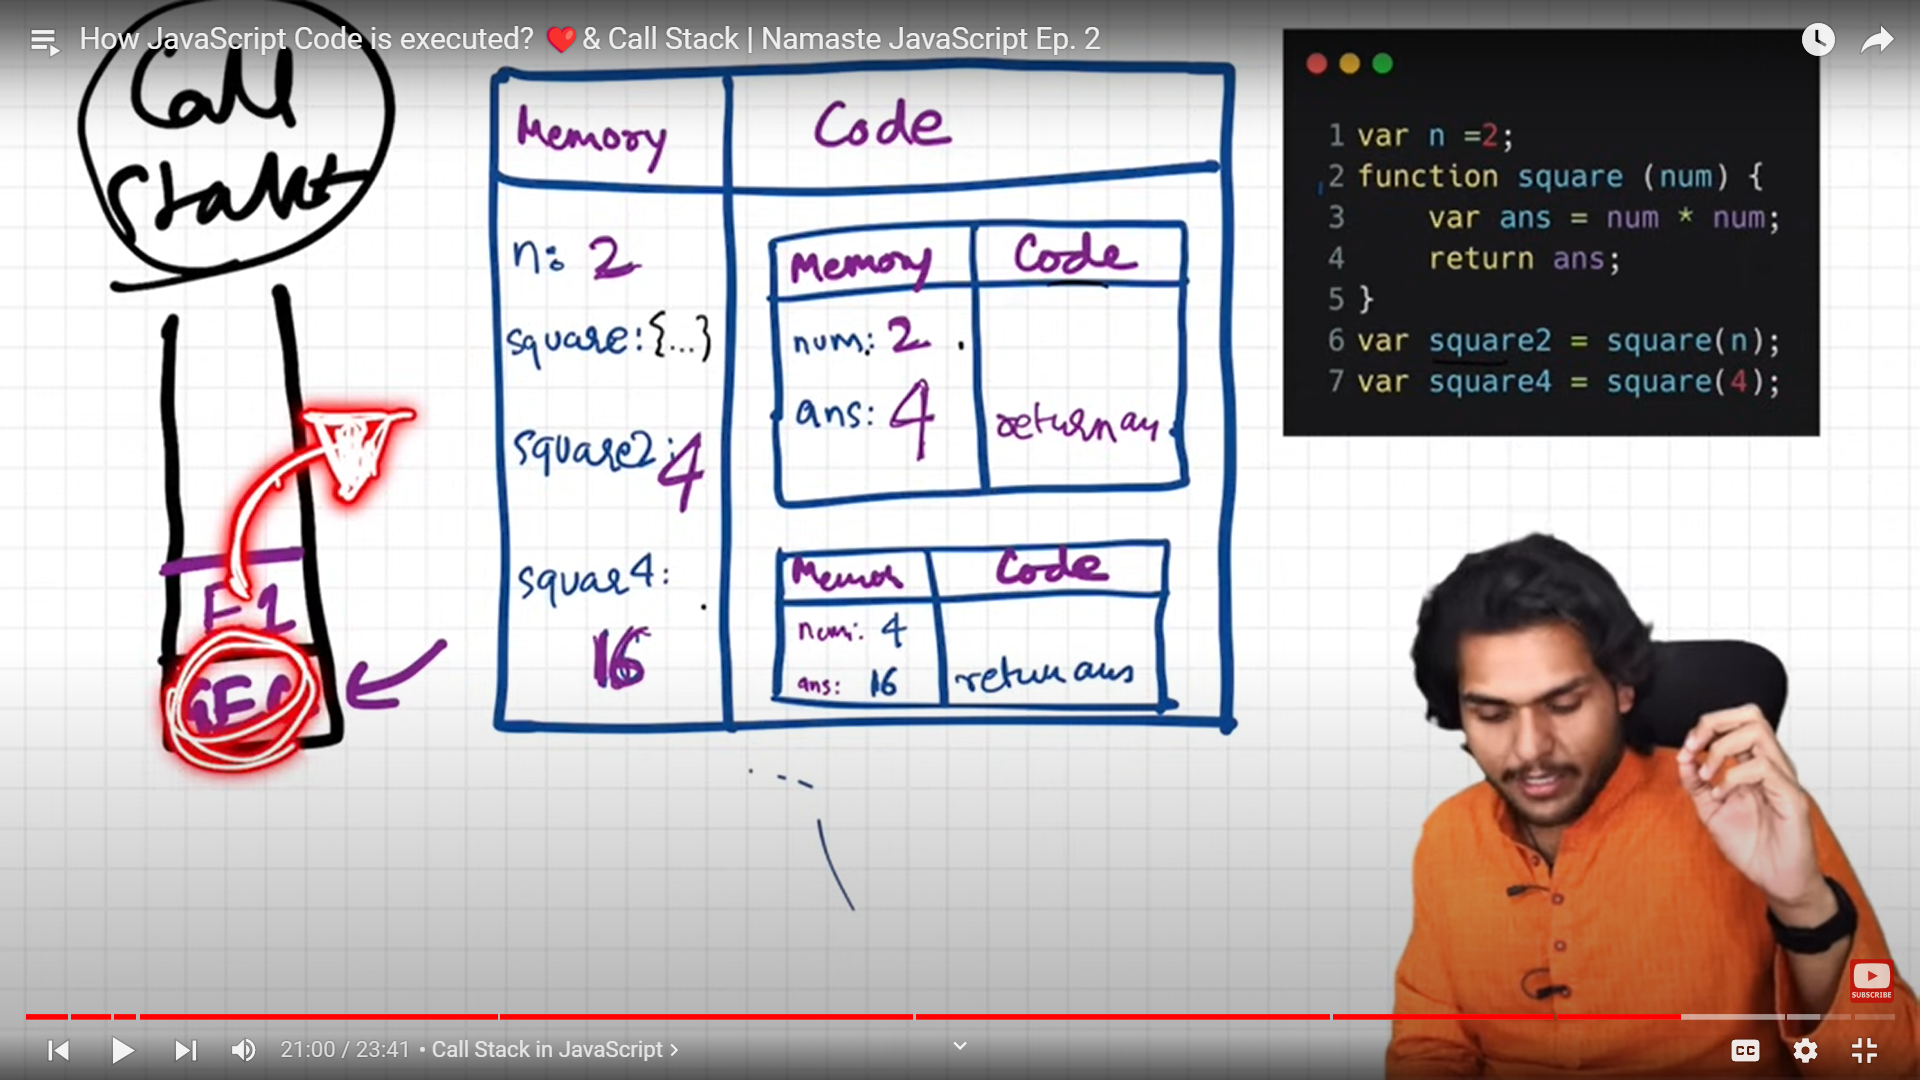 How JavaScript Code is executed? ❤️& Call Stack | Namaste JavaScript Ep. 2
Call
Stack
E1
GEC
Memory
Code
n: 2
square: {...}
square2: 4
squar4:
16
Memory
Code
num: 2
ans: 4
return an
Memor
Code
num: 4
ans: 16
return ans
1 var n =2;
2 function square (num) {
3 var ans = num * num;
4 return ans;
5 }
6 var square2 = square(n);
7 var square4 = square(4);
SUBSCRIBE
21:00 / 23:41 • Call Stack in JavaScript >
CC